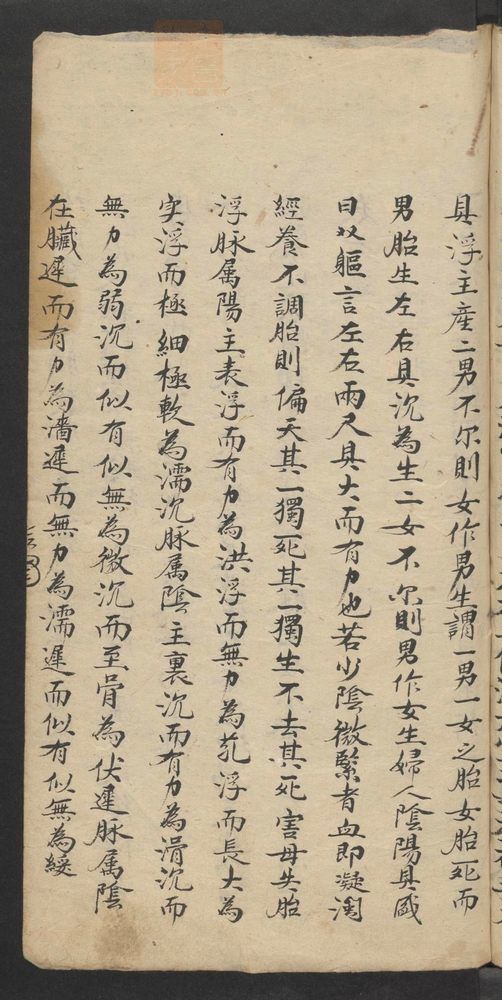 具浮主産二男不尔則女作男生謂一男一女之胎女胎死而
男胎生左右具沉為生二女不尔則男作女生婦人陰陽具盛
曰双軀言左右兩尺具大而有力也若少陰微緊者血即凝濁
經養不調胎則偏夭其一獨死其一獨生不去其死害母失胎
浮脉属陽主表浮而有力為洪浮而無力為芤浮而長大為
实浮而極細極軟為濡沉脉属陰主裏沉而有力為滑沉而
無力為弱沉而似有似無為微沉而至骨為伏遲脉属陰
在臟遲而有力為濇遲而無力為濡遲而似有似無為緩